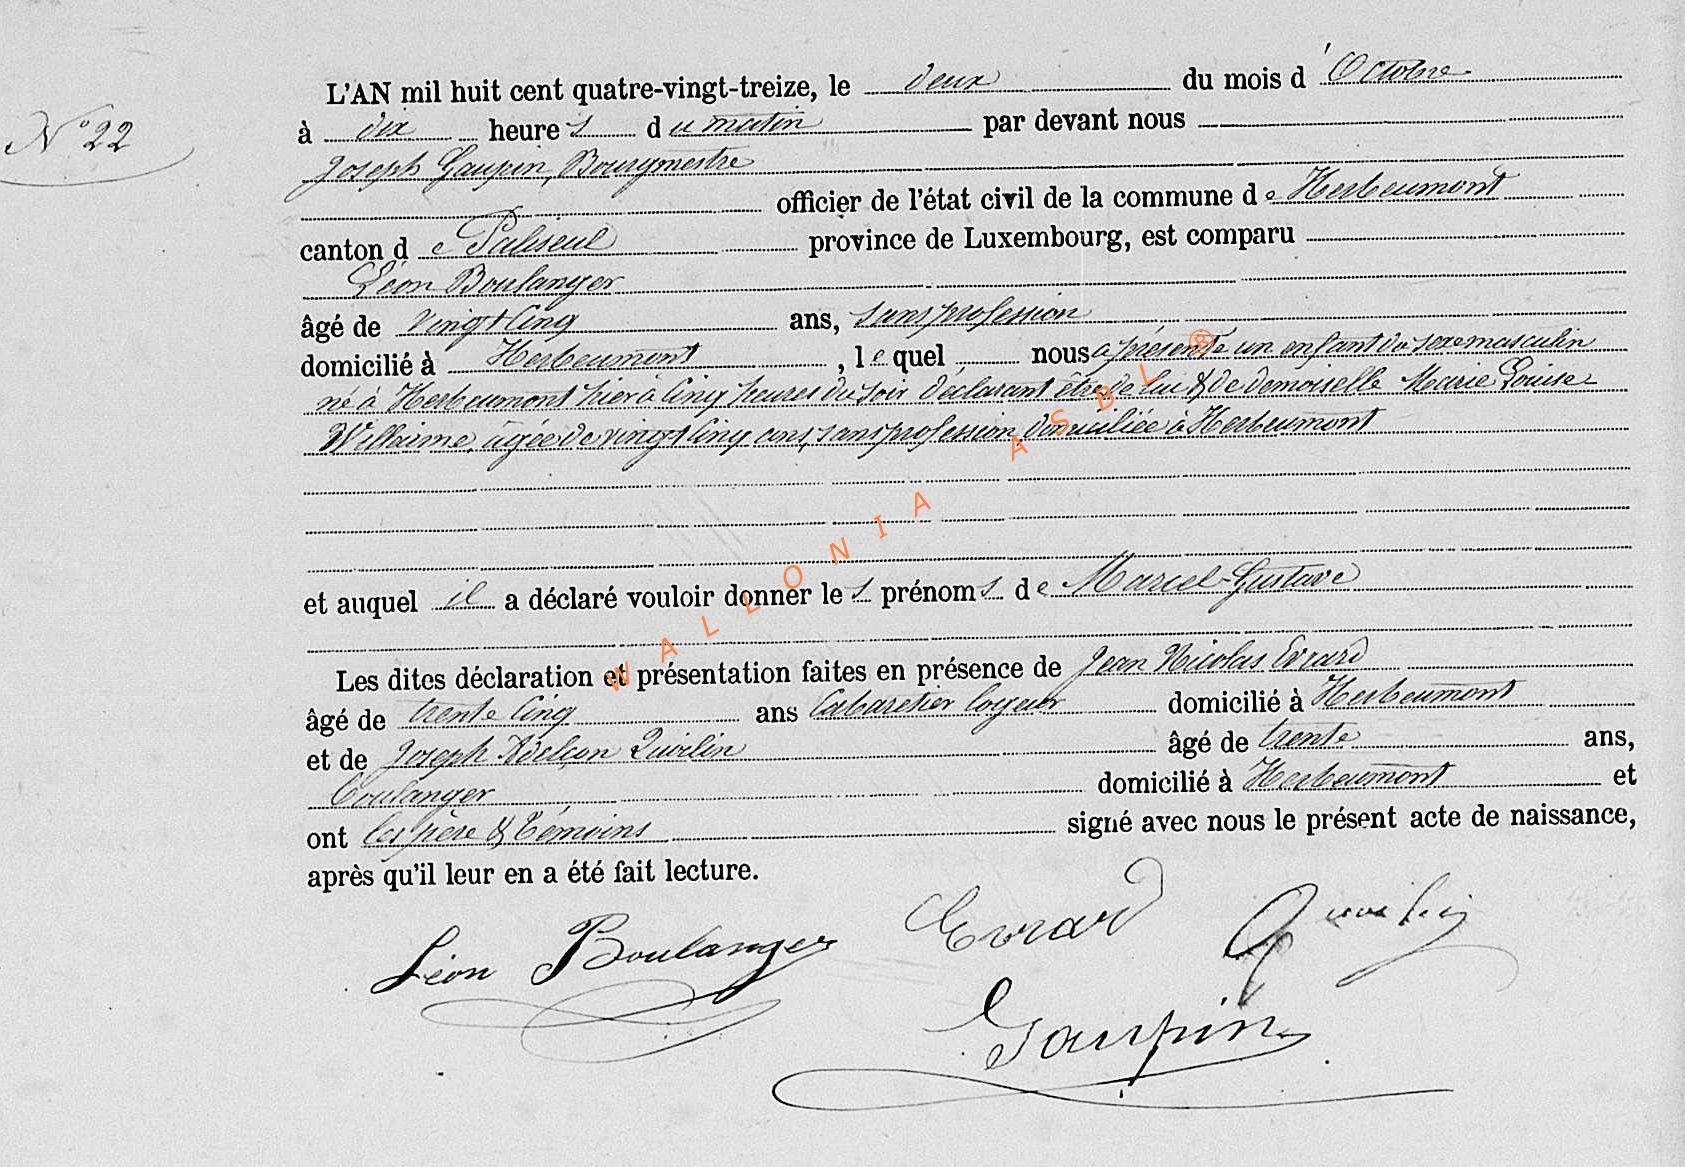 N° 22
L'AN mil huit cent quatre-vingt-treize, le deux du mois d'Octobre
à dix heures du matin par devant nous
Joseph Gaupin, Bourgmestre
officier de l'état civil de la commune de Herbeumont
canton de Paliseul province de Luxembourg, est comparu
Léon Boulanger
âgé de vingt cinq ans, sans profession
domicilié à Herbeumont, lequel nous a présenté un enfant du sexe masculin
né à Herbeumont hier à cinq heures du soir déclarant être de lui & de demoiselle Marie Louise
Willaime, âgée de vingt cinq ans, sans profession domiciliée à Herbeumont
et auquel il a déclaré vouloir donner les prénoms de Marcel-Gustave
Les dites déclaration et présentation faites en présence de Jean Nicolas Evrard
âgé de trente cinq ans Cabaretier domicilié à Herbeumont
et de Joseph Quirilin âgé de trente ans,
boulanger domicilié à Herbeumont et
ont les père & témoins signé avec nous le présent acte de naissance,
après qu'il leur en a été fait lecture.
Léon Boulanger Evrard
Gaupin
WALLONIA ASBL ®